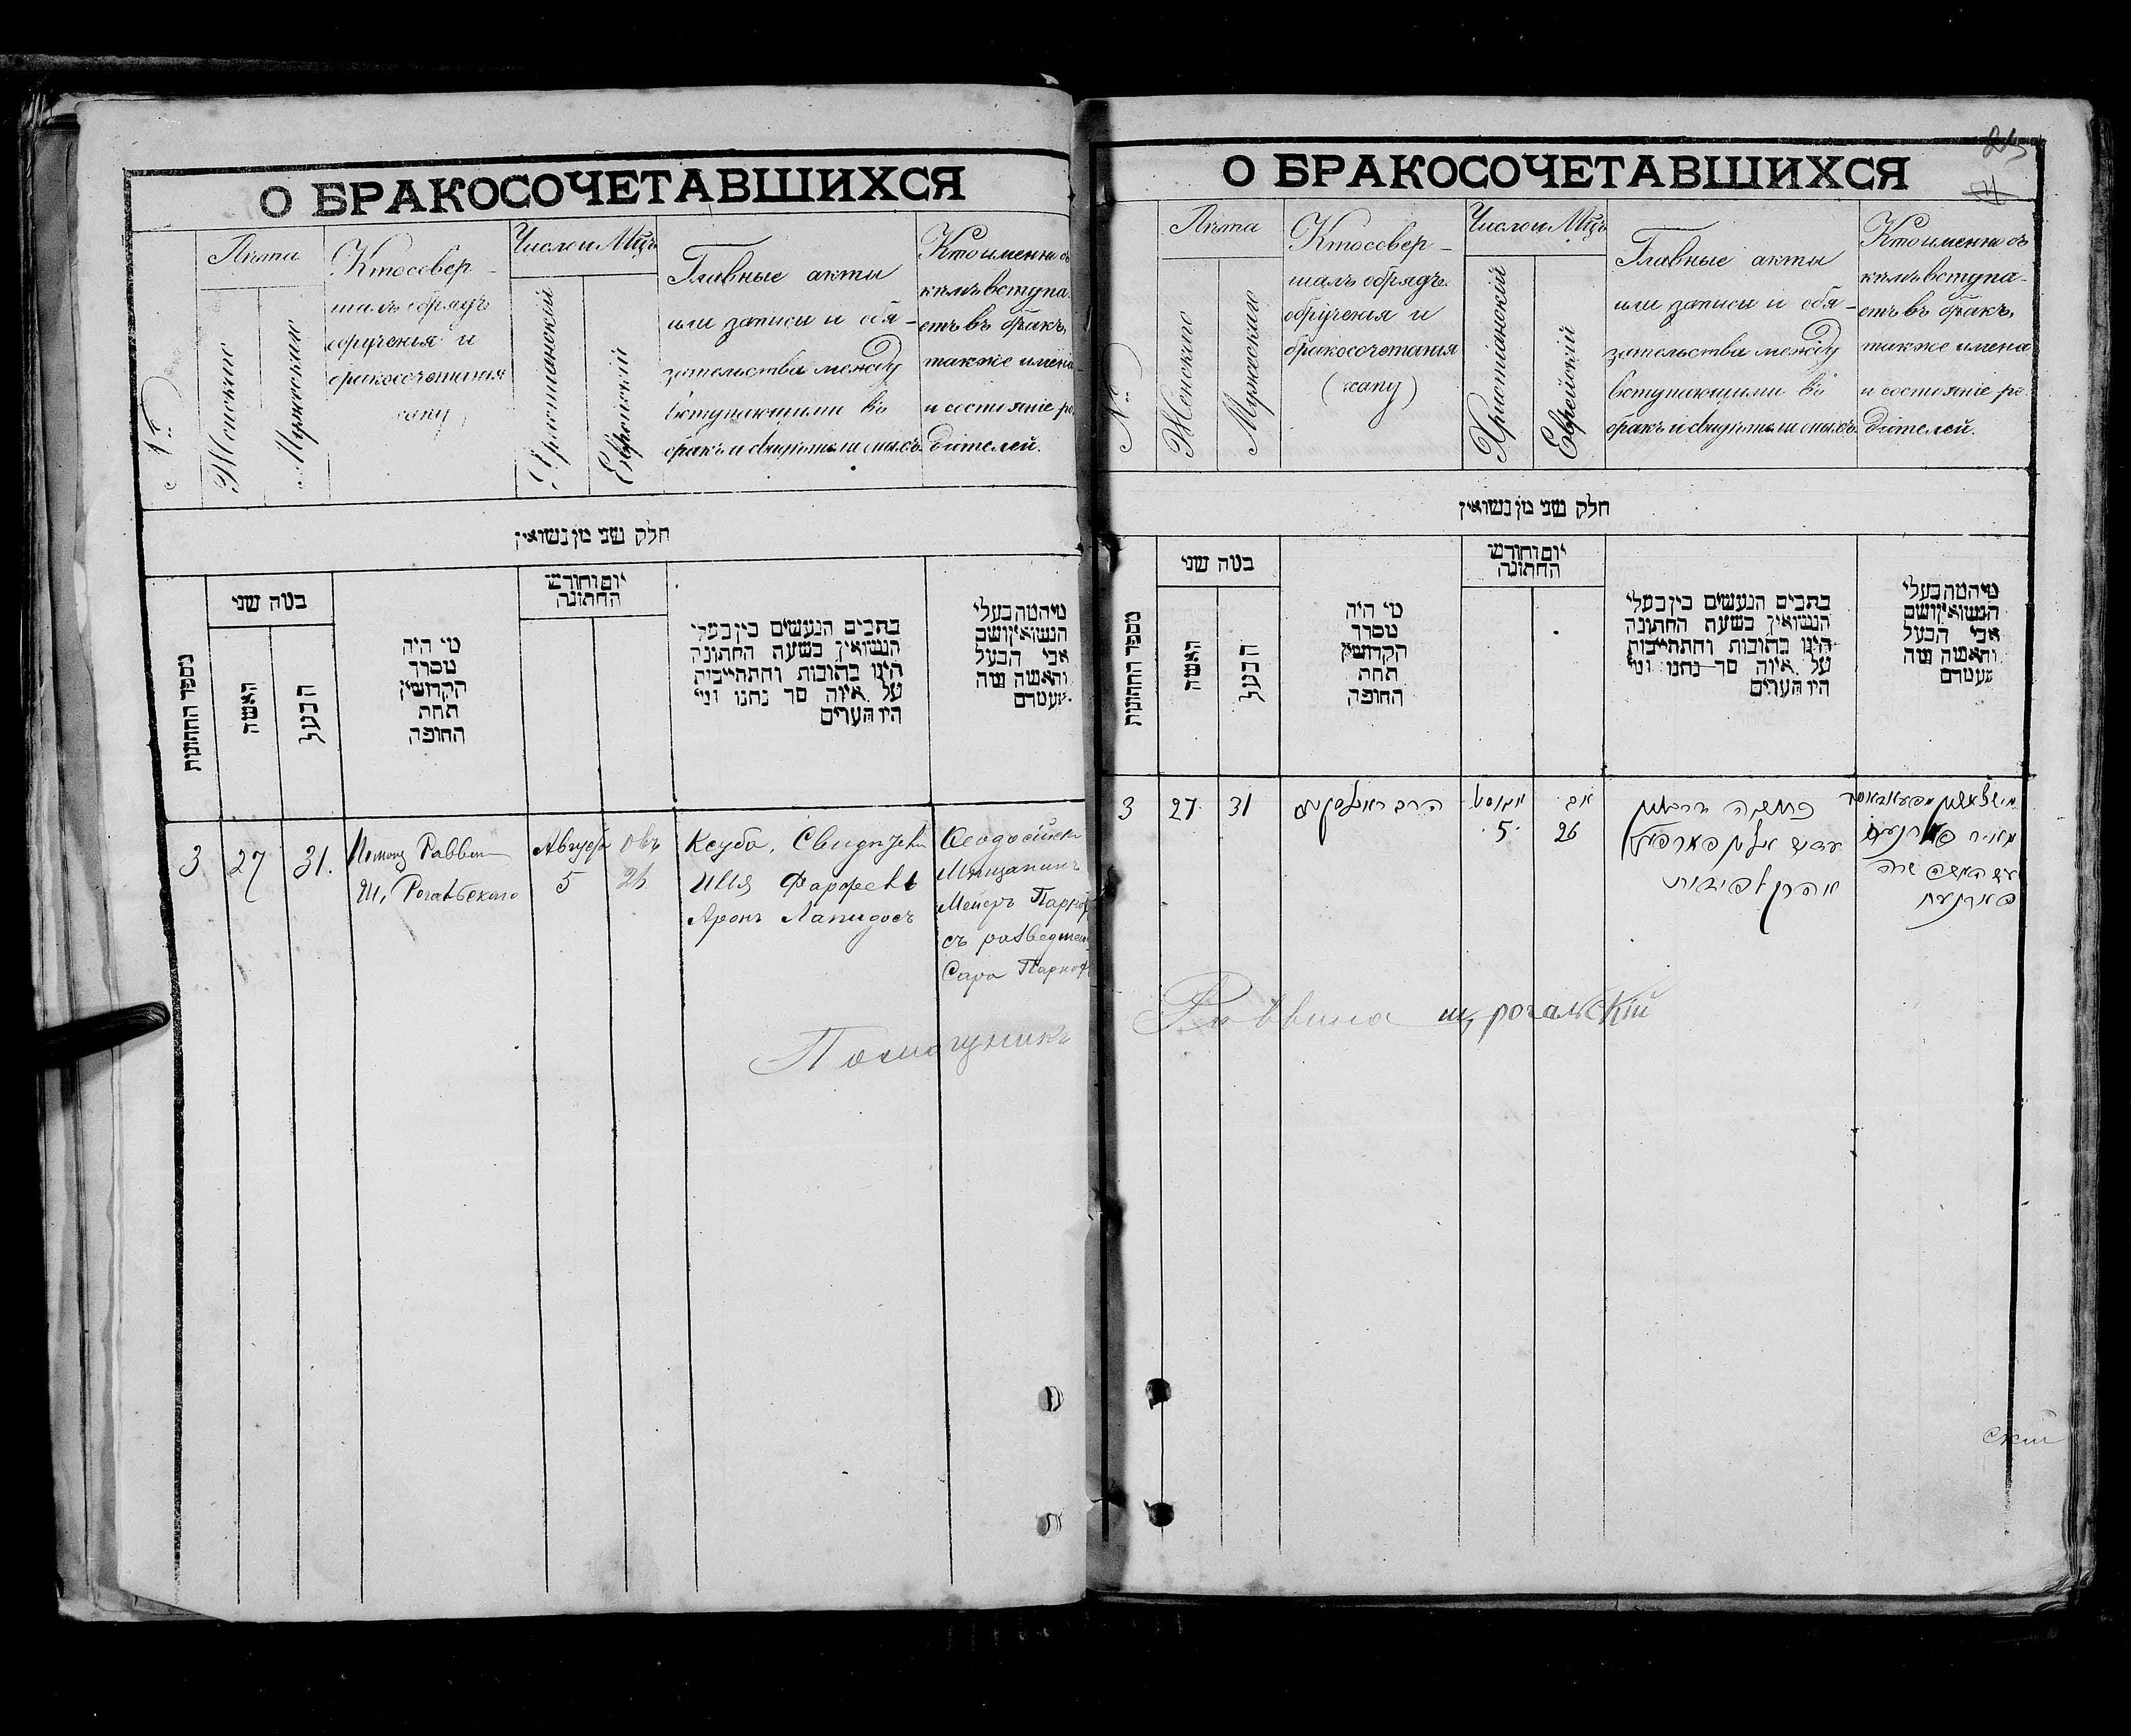 О БРАКОСОЧЕТАВШИХСЯ
№
Лѣта
Женскіе
Мужескіе
Кто совер-
шалъ обрядъ
обрученія и
бракосочетанія
(хапу)
Число и Мцъ
Христианскій
Еврейскій
Главные акты
или записи и обя-
зательства между
вступающими во
бракъ и свидѣтели оныхъ
Кто именно съ
кѣмъ вступа-
етъ въ бракъ,
также имена
и состояніе ро
дителей.
חלק שני מן נשואין
מספר החתונות
במה שני
האשה
הבעל
מי היה
מסדר
הקדושין
תחת
החופה
יום וחודש
החתונה
כתבים הנעשים בין בעלי
הנשואין בשעת החתונה
היינו כתובות והתחייבות
על איזה סך נתנו ומי
היו העדים
מי המה בעלי
הנשואין ושם
אבי הבעל
והאשה ומה
מעמדם
3
27
31.
Раввин
Ш. Рогальского
Августа
5
Овъ
26
Ксуба, Свидѣтели
Илія Фарфель
Аронъ Лапидосъ
Мѣщанинъ
Мейеръ
съ разведен
Сара
Помощникъ
О БРАКОСОЧЕТАВШИХСЯ
№
Лѣта
Женскіе
Мужескіе
Кто совер-
шалъ обрядъ
обрученія и
бракосочетанія
(хапу)
Число и Мцъ
Христианскій
Еврейскій
Главные акты
или записи и обя-
зательства между
вступающими во
бракъ и свидѣтели оныхъ
Кто именно съ
кѣмъ вступа-
етъ въ бракъ,
также имена
и состояніе ро
дителей.
חלק שני מן נשואין
מספר החתונות
במה שני
האשה
הבעל
מי היה
מסדר
הקדושין
תחת
החופה
יום וחודש
החתונה
כתבים הנעשים בין בעלי
הנשואין בשעת החתונה
היינו כתובות והתחייבות
על איזה סך נתנו ומי
היו העדים
מי המה בעלי
הנשואין ושם
אבי הבעל
והאשה ומה
מעמדם
3
27
31
הרב ראגאלסקי
אגוסט
5
אב
26
אהרן לפידות
מאיר
שרה
Раввина Ш, рогальскій
скій